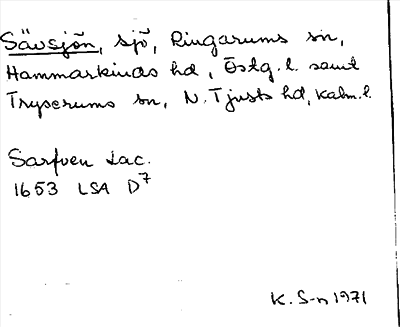 Sävsjön, sjö, Ringarums sn,
Hammarkinds hd, Östg. l. samt
Tryserums sn, N. Tjusts hd, Kalm. l.
Sarfven Lac.
1653 LSA D⁷
K. S-n 1971